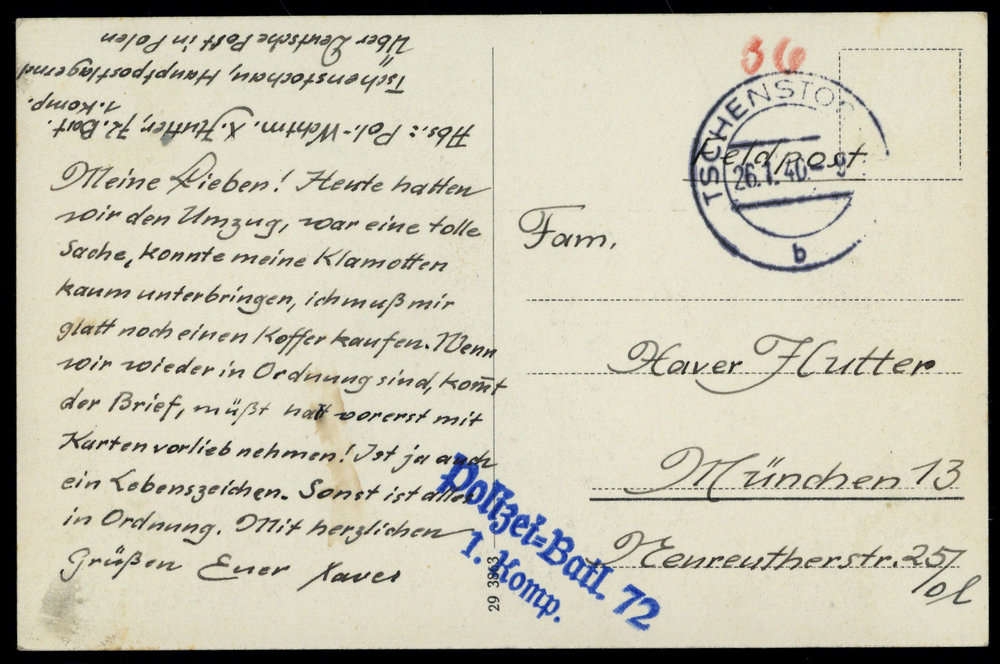 Abs.: Pol.-Wchtm. X. Hutter, 72. Batt.
1. Komp.
Tschenstochau, Hauptpostlagernd
Über Deutsche Post in Polen
Meine Lieben! Heute hatten
wir den Umzug, war eine tolle
Sache, konnte meine Klamotten
kaum unterbringen, ich muß mir
glatt noch einen Koffer kaufen. Wenn
wir wieder in Ordnung sind, kom̅t
der Brief, müßt halt vorerst mit
Karten vorlieb nehmen! Ist ja auch
ein Lebenszeichen. Sonst ist alles
in Ordnung. Mit herzlichen
Grüßen Euer Xaver
36
TSCHENSTOC
26.1.40.-9
b
Feldpost.
Fam.
Xaver Hutter
München 13
Nenreutherstr. 25/
ol
Polizei=Batl. 72
1. Komp.